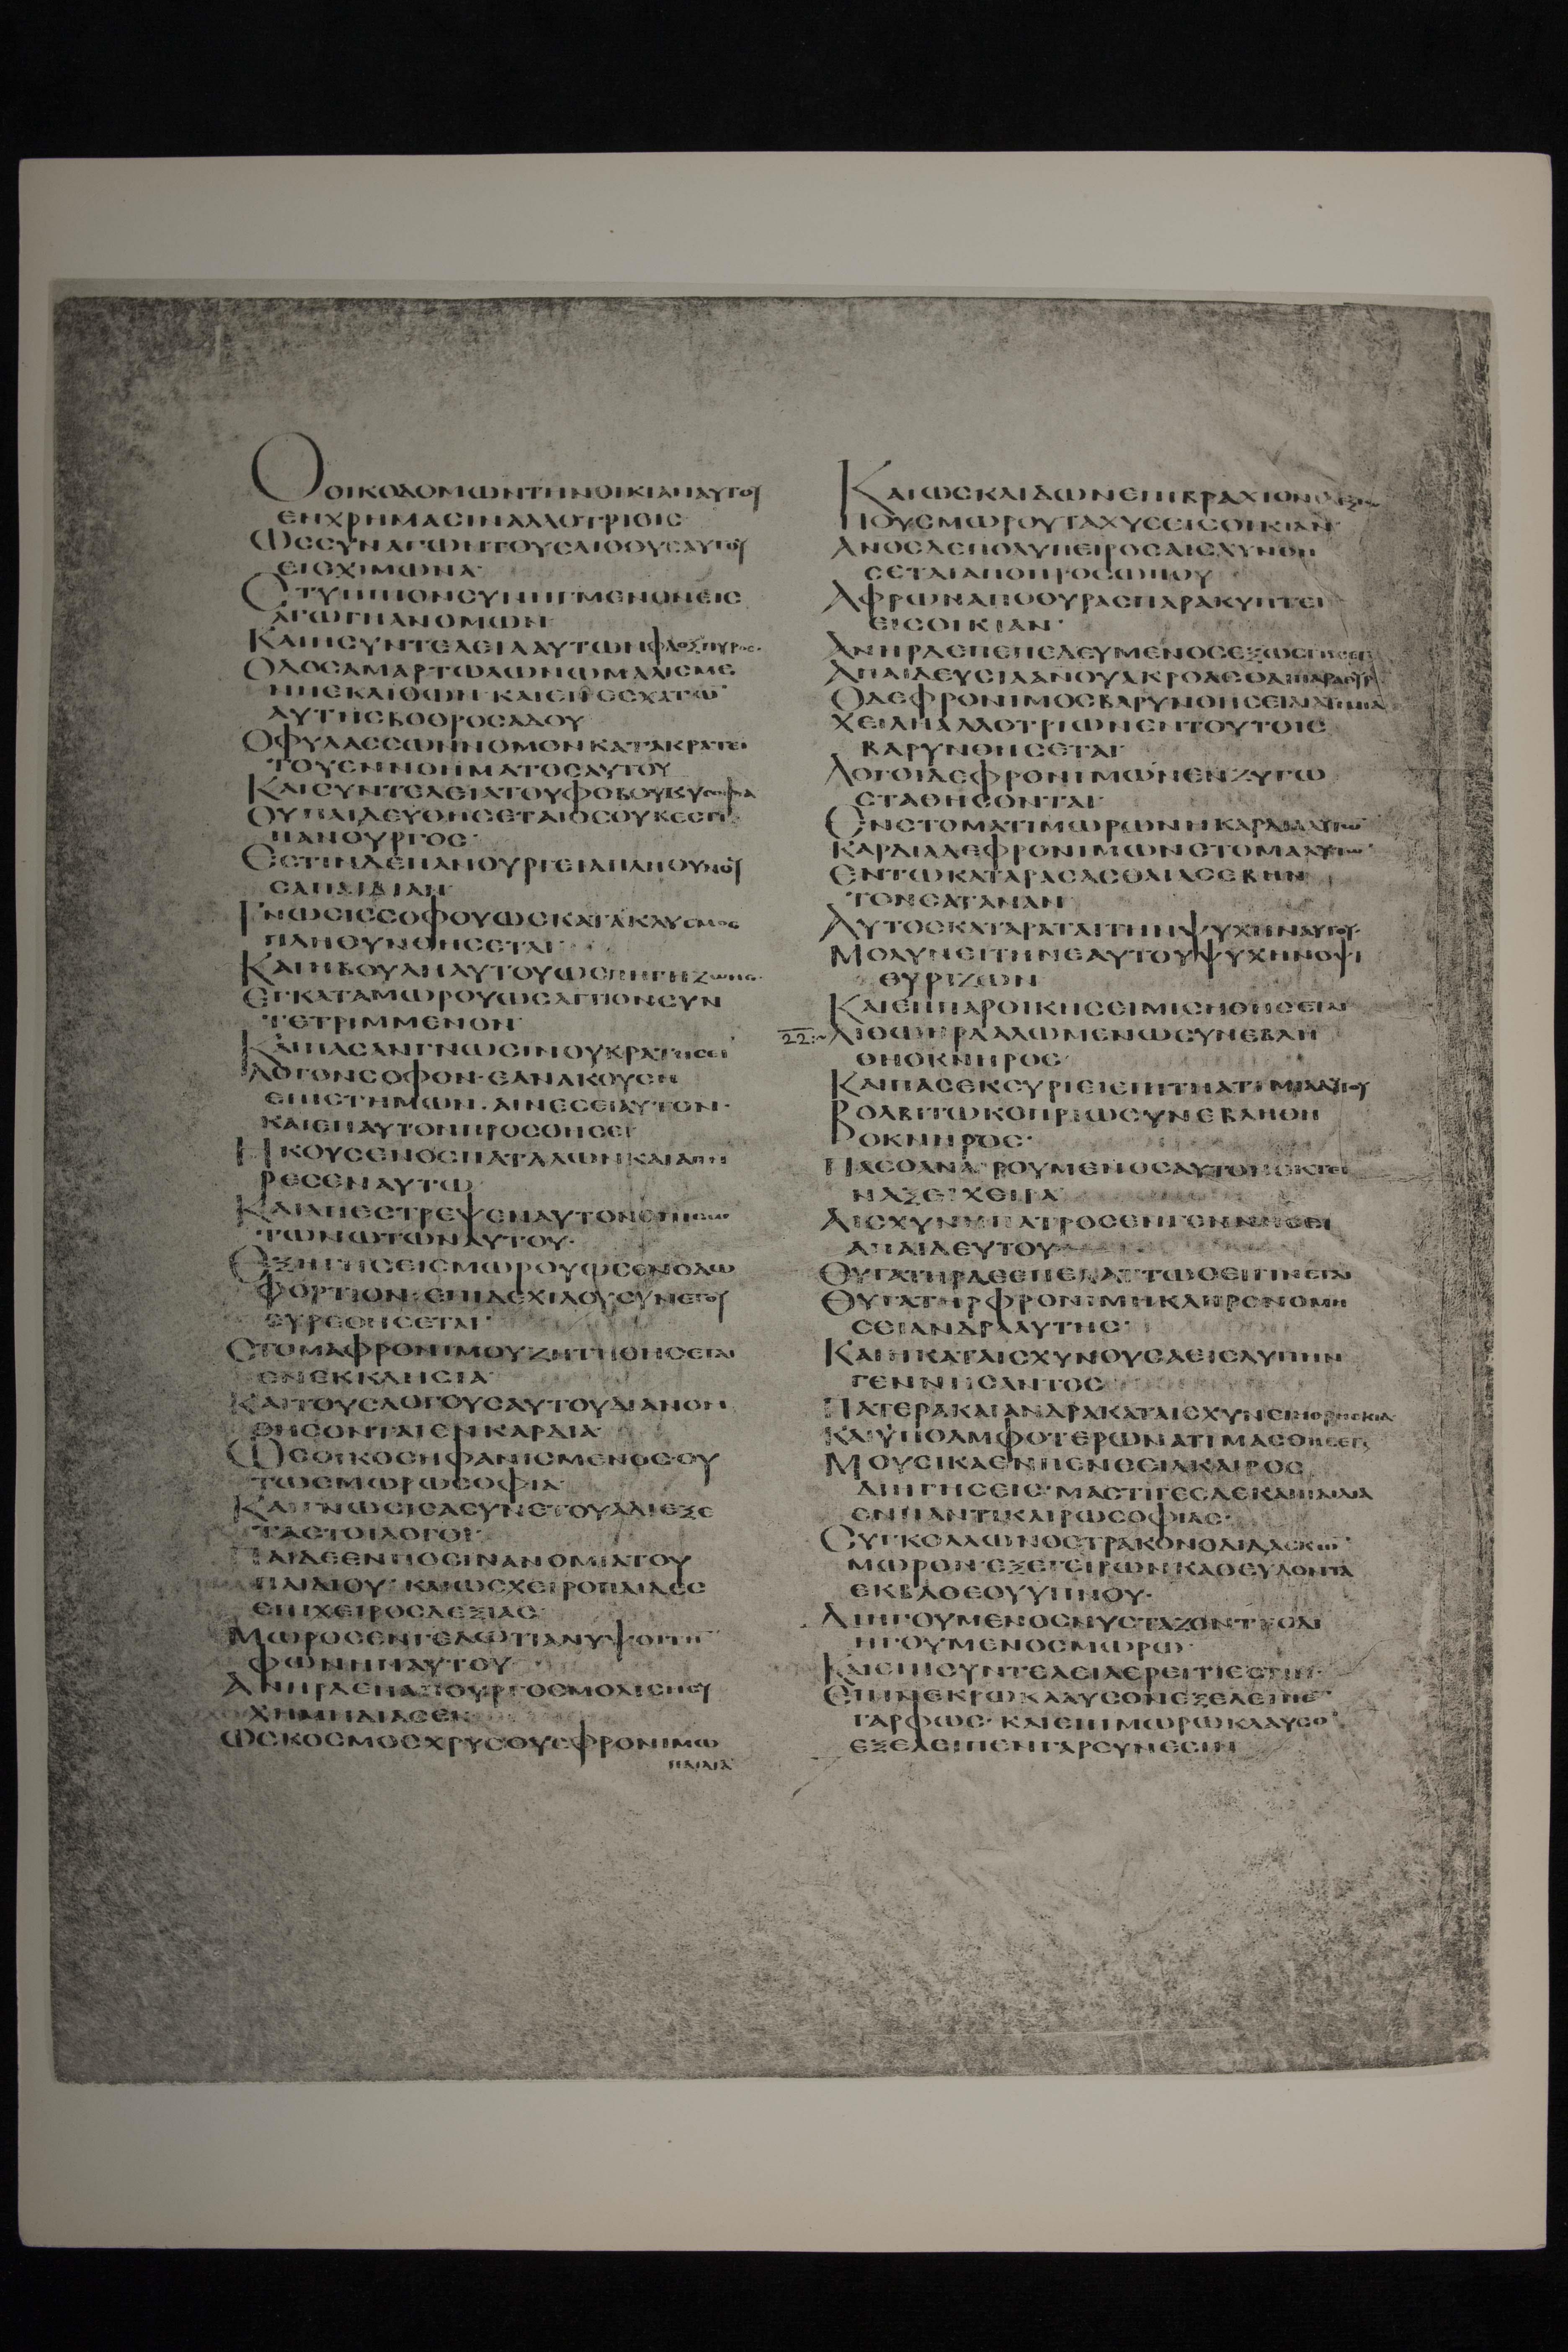 ΟΟΙΚΟΔΟΜΩΝΤΗΝΟΙΚΙΑΝΑΥΤΟΥ
ΕΝΧΡΗΜΑCΙΝΑΛΛΟΤΡΙΟΙC
ΩCCΥΝΑΓΩΝΤΟΥCΛΙΘΟΥCΑΥΤΟΥ
ΕΙCΧΙΜΩΝΑ·
CΤΥΠΠΙΟΝCΥΝΗΓΜΕΝΟΝΕΙC
ΑΓΩΓΗΑΝΟΜΩΝ
ΚΑΙΗCΥΝΤΕΛΕΙΑΑΥΤΩΝΦΛΟΞΠΥΡΟC·
ΟΔΟCΑΜΑΡΤΩΛΩΝΩΜΑΛΙCΜΕ
ΑΥΤΗCΒΟΘΡΟCΑΔΟΥ
ΟΦΥΛΑCCΩΝΝΟΜΟΝΚΑΤΑΚΡΑΤΕΙ
ΤΟΥΕΝΝΟΗΜΑΤΟCΑΥΤΟΥ
ΚΑΙCΥΝΤΕΛΕΙΑΤΟΥΦΟΒΟΥΚΥCΟΦΙΑ
ΟΥΠΑΙΔΕΥΘΗCΕΤΑΙΟCΟΥΚΕCΤΙ
ΠΑΝΟΥΡΓΟC·
ΕCΤΙΝΔΕΠΑΝΟΥΡΓΕΙΑΠΛΗΘΥΝΟΥ
CΑΠΙΚΡΙΑΝ
ΓΝΩCΙCCΟΦΟΥΩCΚΑΤΑΚΛΥCΜΟC
ΠΛΗΘΥΝΘΗCΕΤΑΙ·
ΚΑΙΗΒΟΥΛΗΑΥΤΟΥΩCΠΗΓΗΖΩΗC·
ΕΓΚΑΤΑΜΩΡΟΥΩCΑΓΓΙΟΝCΥΝ
ΤΕΤΡΙΜΜΕΝΟΝ
ΚΑΙΠΑCΑΝΓΝΩCΙΝΟΥΚΡΑΤΗCΕΙ
ΛΟΓΟΝCΟΦΟΝ·ΕΑΝΑΚΟΥCΗ
ΕΠΙCΤΗΜΩΝ·ΑΙΝΕCΕΙΑΥΤΟΝ·
ΚΑΙΕΠΑΥΤΟΝΠΡΟCΘΗCΕΙ
ΗΚΟΥCΕΝΟCΠΑΤΑΛΩΝΚΑΙΑΠΗ
ΡΕCΕΝΑΥΤΩ
ΚΑΙΑΠΕCΤΡΕΨΕΝΑΥΤΟΝΟΠΙCΩ
ΤΩΝΩΤΩΝΑΥΤΟΥ·
ΕΞΗΓΗCΕΙCΜΩΡΟΥΩCΕΝΟΔΩ
ΦΟΡΤΙΟΝ·ΕΠΙΔΕΧΙΛΟΥCΥΝΕΤΟΥ
ΕΥΡΕΘΗCΕΤΑΙ·
CΤΟΜΑΦΡΟΝΙΜΟΥΖΗΤΗΘΗCΕΤΑΙ
ΕΝΕΚΚΛΗCΙΑ·
ΚΑΙΤΟΥCΛΟΓΟΥCΑΥΤΟΥΔΙΑΝΟΗ
ΘΗCΟΝΤΑΙΕΝΚΑΡΔΙΑ·
ΩCΟΙΚΟCΗΦΑΝΙCΜΕΝΟCΟΥ
ΤΩCΜΩΡΩCΟΦΙΑ
ΚΑΙΓΝΩCΙCΑCΥΝΕΤΟΥΑΔΙΕΞΕ
ΤΑCΤΟΙΛΟΓΟΙ·
ΠΑΙΔΕΕΝΠΟCΙΝΑΝΟΜΙΑΤΟΥ
ΠΑΙΔΙΟΥ·ΚΑΙΩCΧΕΙΡΟΠΑΙΔΕC
ΕΠΙΧΕΙΡΟCΔΕΞΙΑC·
ΜΩΡΟCΕΝΓΕΛΩΤΙΑΝΥΨΟΙΤΗ
ΦΩΝΗΝΑΥΤΟΥ·
ΑΝΗΡΔΕΠΑΝΟΥΡΓΟCΜΟΛΙCΗCΥ
ΧΗΜΙΔΙΑCΕΙ
ΩCΚΟCΜΟCΧΡΥCΟΥCΦΡΟΝΙΜΩ
ΠΑΙΔΙΑ
ΚΑΙΩCΚΛΙΔΩΝΕΠΙΒΡΑΧΙΟΝΙΔΕΞΙΩ
ΠΟΥCΜΩΡΟΥΤΑΧΥCΕΙCΟΙΚΙΑΝ
ΑΝΟCΔΕΠΟΛΥΠΕΙΡΟCΑΙCΧΥΝΘΗ
CΕΤΑΙΑΠΟΠΡΟCΩΠΟΥ
ΑΦΡΩΝΑΠΟΘΥΡΑCΠΑΡΑΚΥΠΤΕΙ
ΕΙCΟΙΚΙΑΝ·
ΑΝΗΡΔΕΠΕΠΕΔΕΥΜΕΝΟCΕΞΩCΤΗCΕΤΑΙ
ΑΠΑΙΔΕΥCΙΑΑΝΟΥΑΚΡΟΑCΘΑΙΠΑΡΑΘΥΡΑ
ΟΔΕΦΡΟΝΙΜΟCΒΑΡΥΝΘΗCΕΤΑΙΑΤΙΜΙΑ
ΧΕΙΛΗΑΛΛΟΤΡΙΩΝΕΝΤΟΥΤΟΙC
ΒΑΡΥΝΘΗCΕΤΑΙ
ΛΟΓΟΙΔΕΦΡΟΝΙΜΩΝΕΝΖΥΓΩ
CΤΑΘΗCΟΝΤΑΙ·
ΕΝCΤΟΜΑΤΙΜΩΡΩΝΗΚΑΡΔΙΑΑΥΤΩ
ΚΑΡΔΙΑΔΕΦΡΟΝΙΜΩΝCΤΟΜΑΑΥΤΩ·
ΕΝΤΩΚΑΤΑΡΑCΘΑΙΑCΕΒΗΝ
ΤΟΝCΑΤΑΝΑΝ
ΑΥΤΟCΚΑΤΑΡΑΤΑΙΤΗΝΨΥΧΗΝΑΥΤΟΥ·
ΜΟΛΥΝΕΙΤΗΝΕΑΥΤΟΥΨΥΧΗΝΟΨΙ
ΘΥΡΙΖΩΝ
ΚΑΙΕΠΠΑΡΟΙΚΗCΕΙΜΙCΗΘΗCΕΤΑΙ
22:~ΛΙΘΩΗΡΑΔΑΛΩΜΕΝΩCΥΝΕΒΛΗ
ΘΗΟΚΝΗΡΟC·
ΚΑΙΠΑCΕΚCΥΡΙΕΙΕΠΙΤΗΑΤΙΜΙΑΑΥΤΟΥ
ΒΟΛΒΙΤΩΚΟΠΡΙΩCΥΝΕΒΛΗΘΗ
ΟΚΝΗΡΟC·
ΠΑCΟΑΝΑΙΡΟΥΜΕΝΟCΑΥΤΟΝΕΚΤΙ
ΝΑΞΕΙΧΕΙΡΑ
ΑΙCΧΥΝΗΠΑΤΡΟCΕΝΓΕΝΝΗCΕΙ
ΑΠΑΙΔΕΥΤΟΥ
ΘΥΓΑΤΗΡΔΕΕΠΕΛΑΤΤΩCΕΙΓΙΝΕΤΑΙ
ΘΥΓΑΤΗΡΦΡΟΝΙΜΗΚΛΗΡΟΝΟΜΗ
CΕΙΑΝΔΡΑΑΥΤΗC·
ΚΑΙΗΚΑΤΑΙCΧΥΝΟΥCΑΕΙCΛΥΠΗΝ
ΓΕΝΝΗCΑΝΤΟC
ΠΑΤΕΡΑΚΑΙΑΝΔΡΑΚΑΤΑΙCΧΥΝΕΙΗΘΡΑCΙΑ
ΚΑΙΥΠΟΑΜΦΟΤΕΡΩΝΑΤΙΜΑCΘΗCΕΤΑΙ
ΜΟΥCΙΚΑΕΝΠΕΝΘΕΙΑΚΑΙΡΟC
ΔΙΗΓΗCΕΙC·ΜΑCΤΙΓΕCΔΕΚΑΙΠΑΙΔΙΑ
ΕΝΠΑΝΤΙΚΑΙΡΩCΟΦΙΑC·
CΥΓΚΟΛΛΩΝΟCΤΡΑΚΟΝΟΔΙΔΑCΚΩ
ΜΩΡΟΝ·ΕΞΕΓΕΙΡΩΝΚΑΘΕΥΔΟΝΤΑ
ΕΚΒΑΘΕΟΥΥΠΝΟΥ·
ΔΙΗΓΟΥΜΕΝΟCΝΥCΤΑΖΟΝΤΙΟΔΙ
ΗΓΟΥΜΕΝΟCΜΩΡΩ·
ΚΑΙΕΠΙCΥΝΤΕΛΕΙΑΕΡΕΙΤΙΕCΤΙΝ·
ΕΠΙΝΕΚΡΩΚΛΑΥCΟΝΕΞΕΛΕΙΠΕ
ΓΑΡΦΩC·ΚΑΙΕΠΙΜΩΡΩΚΛΑΥCΟ
ΕΞΕΛΕΙΠΕΝΓΑΡCΥΝΕCΙΝ